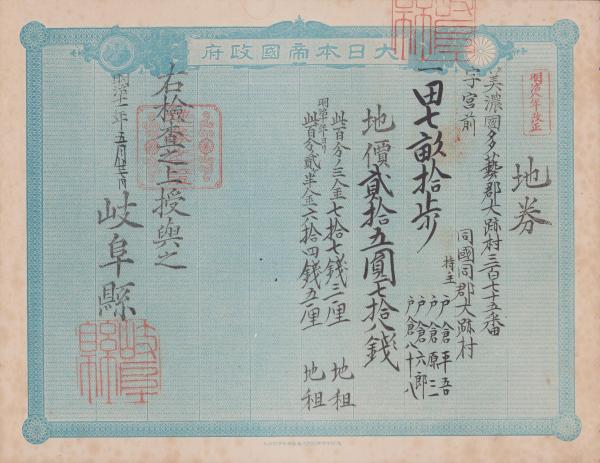 大日本帝國政府
明治八年改正
地券
美濃國多藝郡大跡村三百七十五番
字宮前
同國同郡大跡村
持主
戸倉平吾
戸倉原三
戸倉六郎
戸倉八十八
一田七畝拾歩
地價貳拾五圓七拾八錢
此百分ノ三金七拾七錢三厘 地租
明治十年ヨリ
此百分ノ貳半金六拾四錢五厘 地租
右檢査之上授與之
明治十一年五月廿一日
岐阜縣
岐阜縣